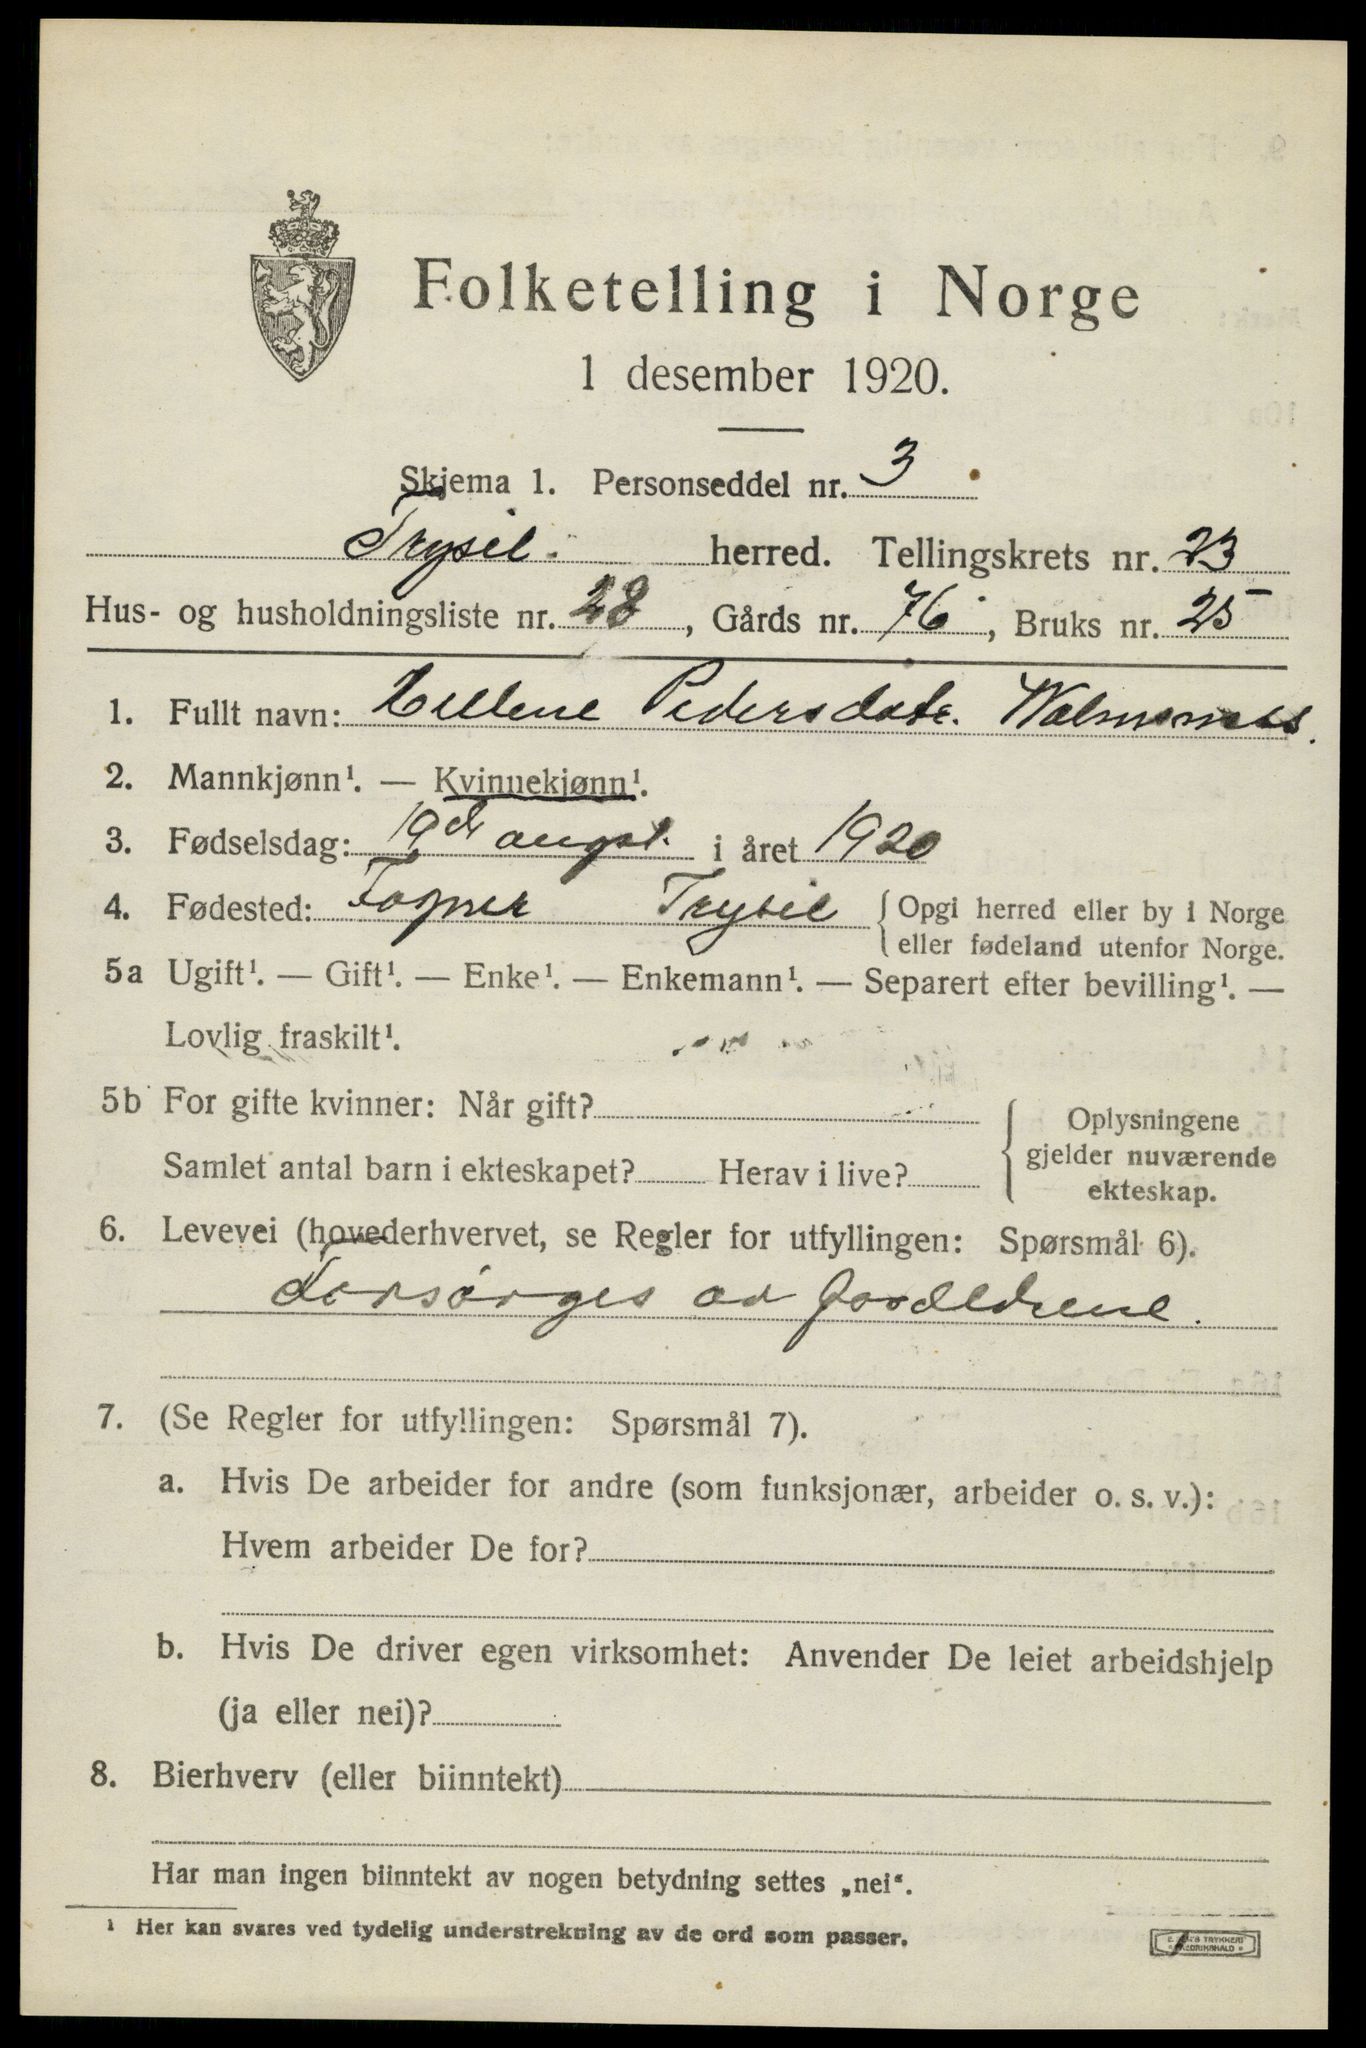 Folketelling i Norge
1 desember 1920.
Skjema 1. Personseddel nr. 3
Trysil. herred. Tellingskrets nr. 23
Hus- og husholdningsliste nr. 28, Gårds nr. 76, Bruks nr. 25
1. Fullt navn: Hellene Pedersdatr.
2. Mannkjønn¹. — Kvinnekjønn¹.
3. Fødselsdag: 19de augst. i året 1920
4. Fødested: Trysil { Opgi herred eller by i Norge
eller fødeland utenfor Norge.
5a Ugift¹. — Gift¹. — Enke¹. — Enkemann¹. — Separert efter bevilling¹. —
Lovlig fraskilt¹.
5b For gifte kvinner: Når gift?
Samlet antal barn i ekteskapet? Herav i live?
{ Oplysningene
gjelder nuværende
ekteskap.
6. Levevei (hovederhvervet, se Regler for utfyllingen: Spørsmål 6).
Forsørges av foreldrene.
7. (Se Regler for utfyllingen: Spørsmål 7).
a. Hvis De arbeider for andre (som funksjonær, arbeider o. s. v.):
Hvem arbeider De for?
b. Hvis De driver egen virksomhet: Anvender De leiet arbeidshjelp
(ja eller nei)?
8. Bierhverv (eller biinntekt)
Har man ingen biinntekt av nogen betydning settes „nei“.
¹ Her kan svares ved tydelig understrekning av de ord som passer.